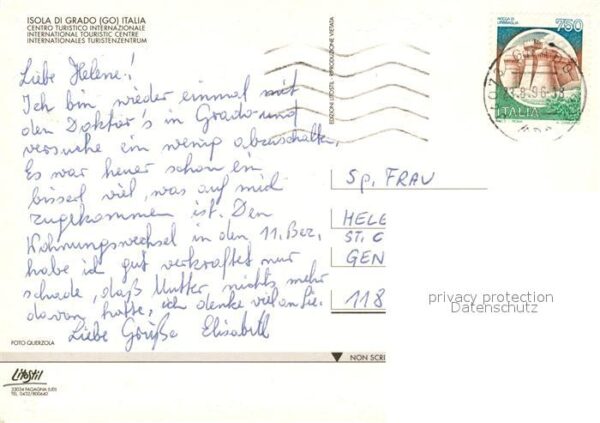 ISOLA DI GRADO (GO) ITALIA
CENTRO TURISTICO INTERNAZIONALE
INTERNATIONAL TOURISTIC CENTRE
INTERNATIONALES TURISTENZENTRUM
Liebe Helene!
Ich bin wieder einmal mit
den Doktor's in Grado und
versuche ein wenig abzuschalten.
Es war heuer schon ein
bisserl viel, was auf mich
zugekommen ist. Den
Wohnungswechsel in den 11. Bez.
habe ich gut verkraftet nur
schade, daß Mutter, nichts mehr
davon hatte, ich denke viel an Sie.
Liebe Grüße Elisabeth
FOTO QUERZOLA
Litostil
33034 FAGAGNA (UD)
TEL. 0432/800640
EDIZIONI LITOSTIL - RIPRODUZIONE VIETATA
ROCCA DI
URBISAGLIA
750
ITALIA
Sp. FRAU
HELE
ST. C
GEN
118
privacy protection
Datenschutz
NON SCRI